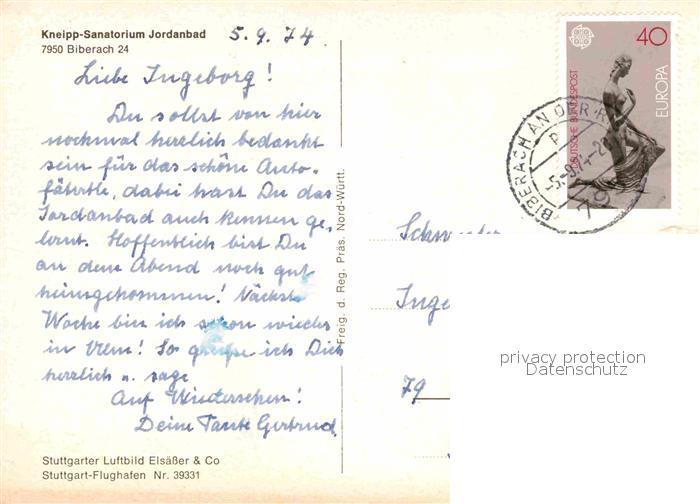 Kneipp-Sanatorium Jordanbad 5.9.74
7950 Biberach 24
Liebe Ingeborg!
Du sollst von hier
nochmal herzlich bedankt
sein für das schöne Auto-
fährtle, dabei hast Du das
Jordanbad auch kennen ge-
lernt. Hoffentlich bist Du
an dem Abend noch gut
heimgekommen! Nächste
Woche bin ich schon wieder
in Ulm! So grüße ich Dich
herzlich u. sage
Auf Wiedersehen!
Deine Tante Gertrud.
Stuttgarter Luftbild Elsäßer & Co
Stuttgart-Flughafen Nr. 39331
Freig. d. Reg. Präs. Nord-Württ.
40
EUROPA
DEUTSCHE BUNDESPOST
BIBERACH AN DER R
79
Inge
79
privacy protection
Datenschutz